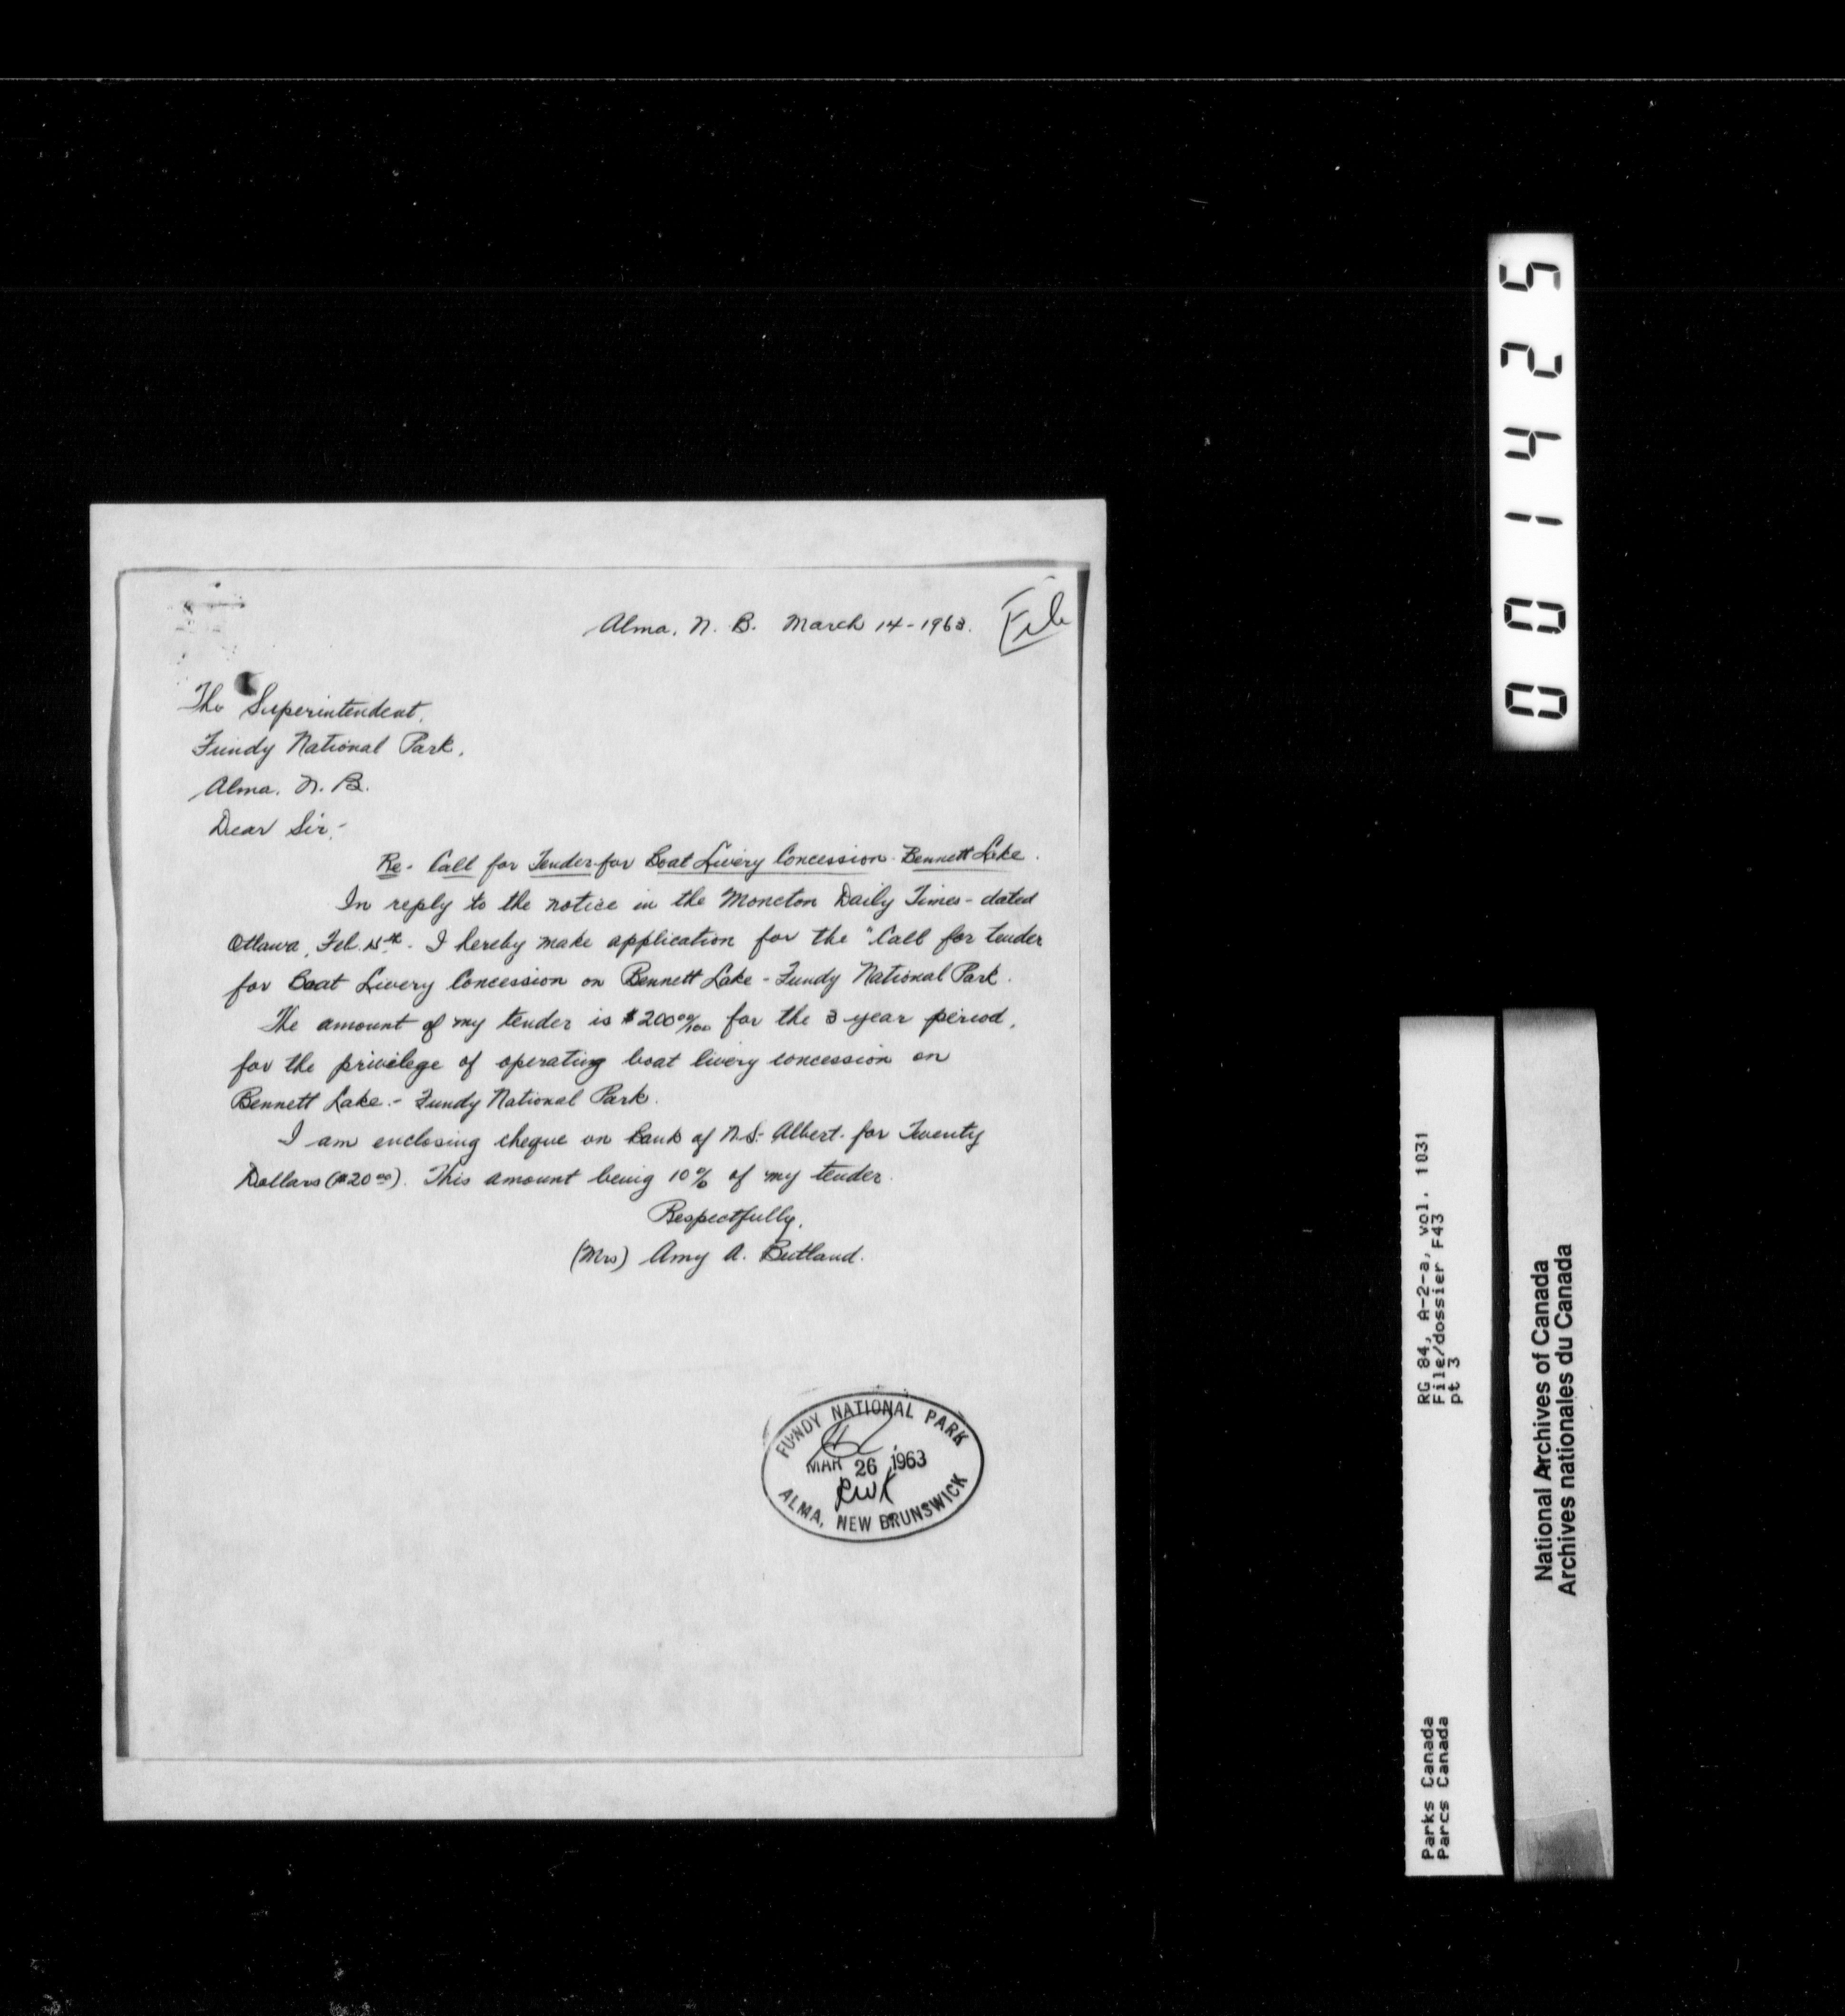 Alma, N. B. March 14-1963.
File
The Superintendent,
Fundy National Park,
Alma, N. B.
Dear Sir,-
Re- Call for Tender for Boat Livery Concession- Bennett Lake.
In reply to the notice in the Moncton Daily Times- dated
Ottawa, Feb. 15th. I hereby make application for the "Call for tender
for Boat Livery Concession on Bennett Lake - Fundy National Park.
The amount of my tender is $200 00/100 for the 3 year period,
for the privilege of operating boat livery concession on
Bennett Lake.- Fundy National Park.
I am enclosing cheque on Bank of N.S.- Albert. for Twenty
Dollars ($20 00). This amount being 10% of my tender.
Respectfully,
(Mrs) Amy A. Butland.
FUNDY NATIONAL PARK
MAR 26 1963
RWK
ALMA, NEW BRUNSWICK
001425
RG 84, A-2-a, vol. 1031
File/dossier F43
pt 3
Parks Canada
Parcs Canada
National Archives of Canada
Archives nationales du Canada